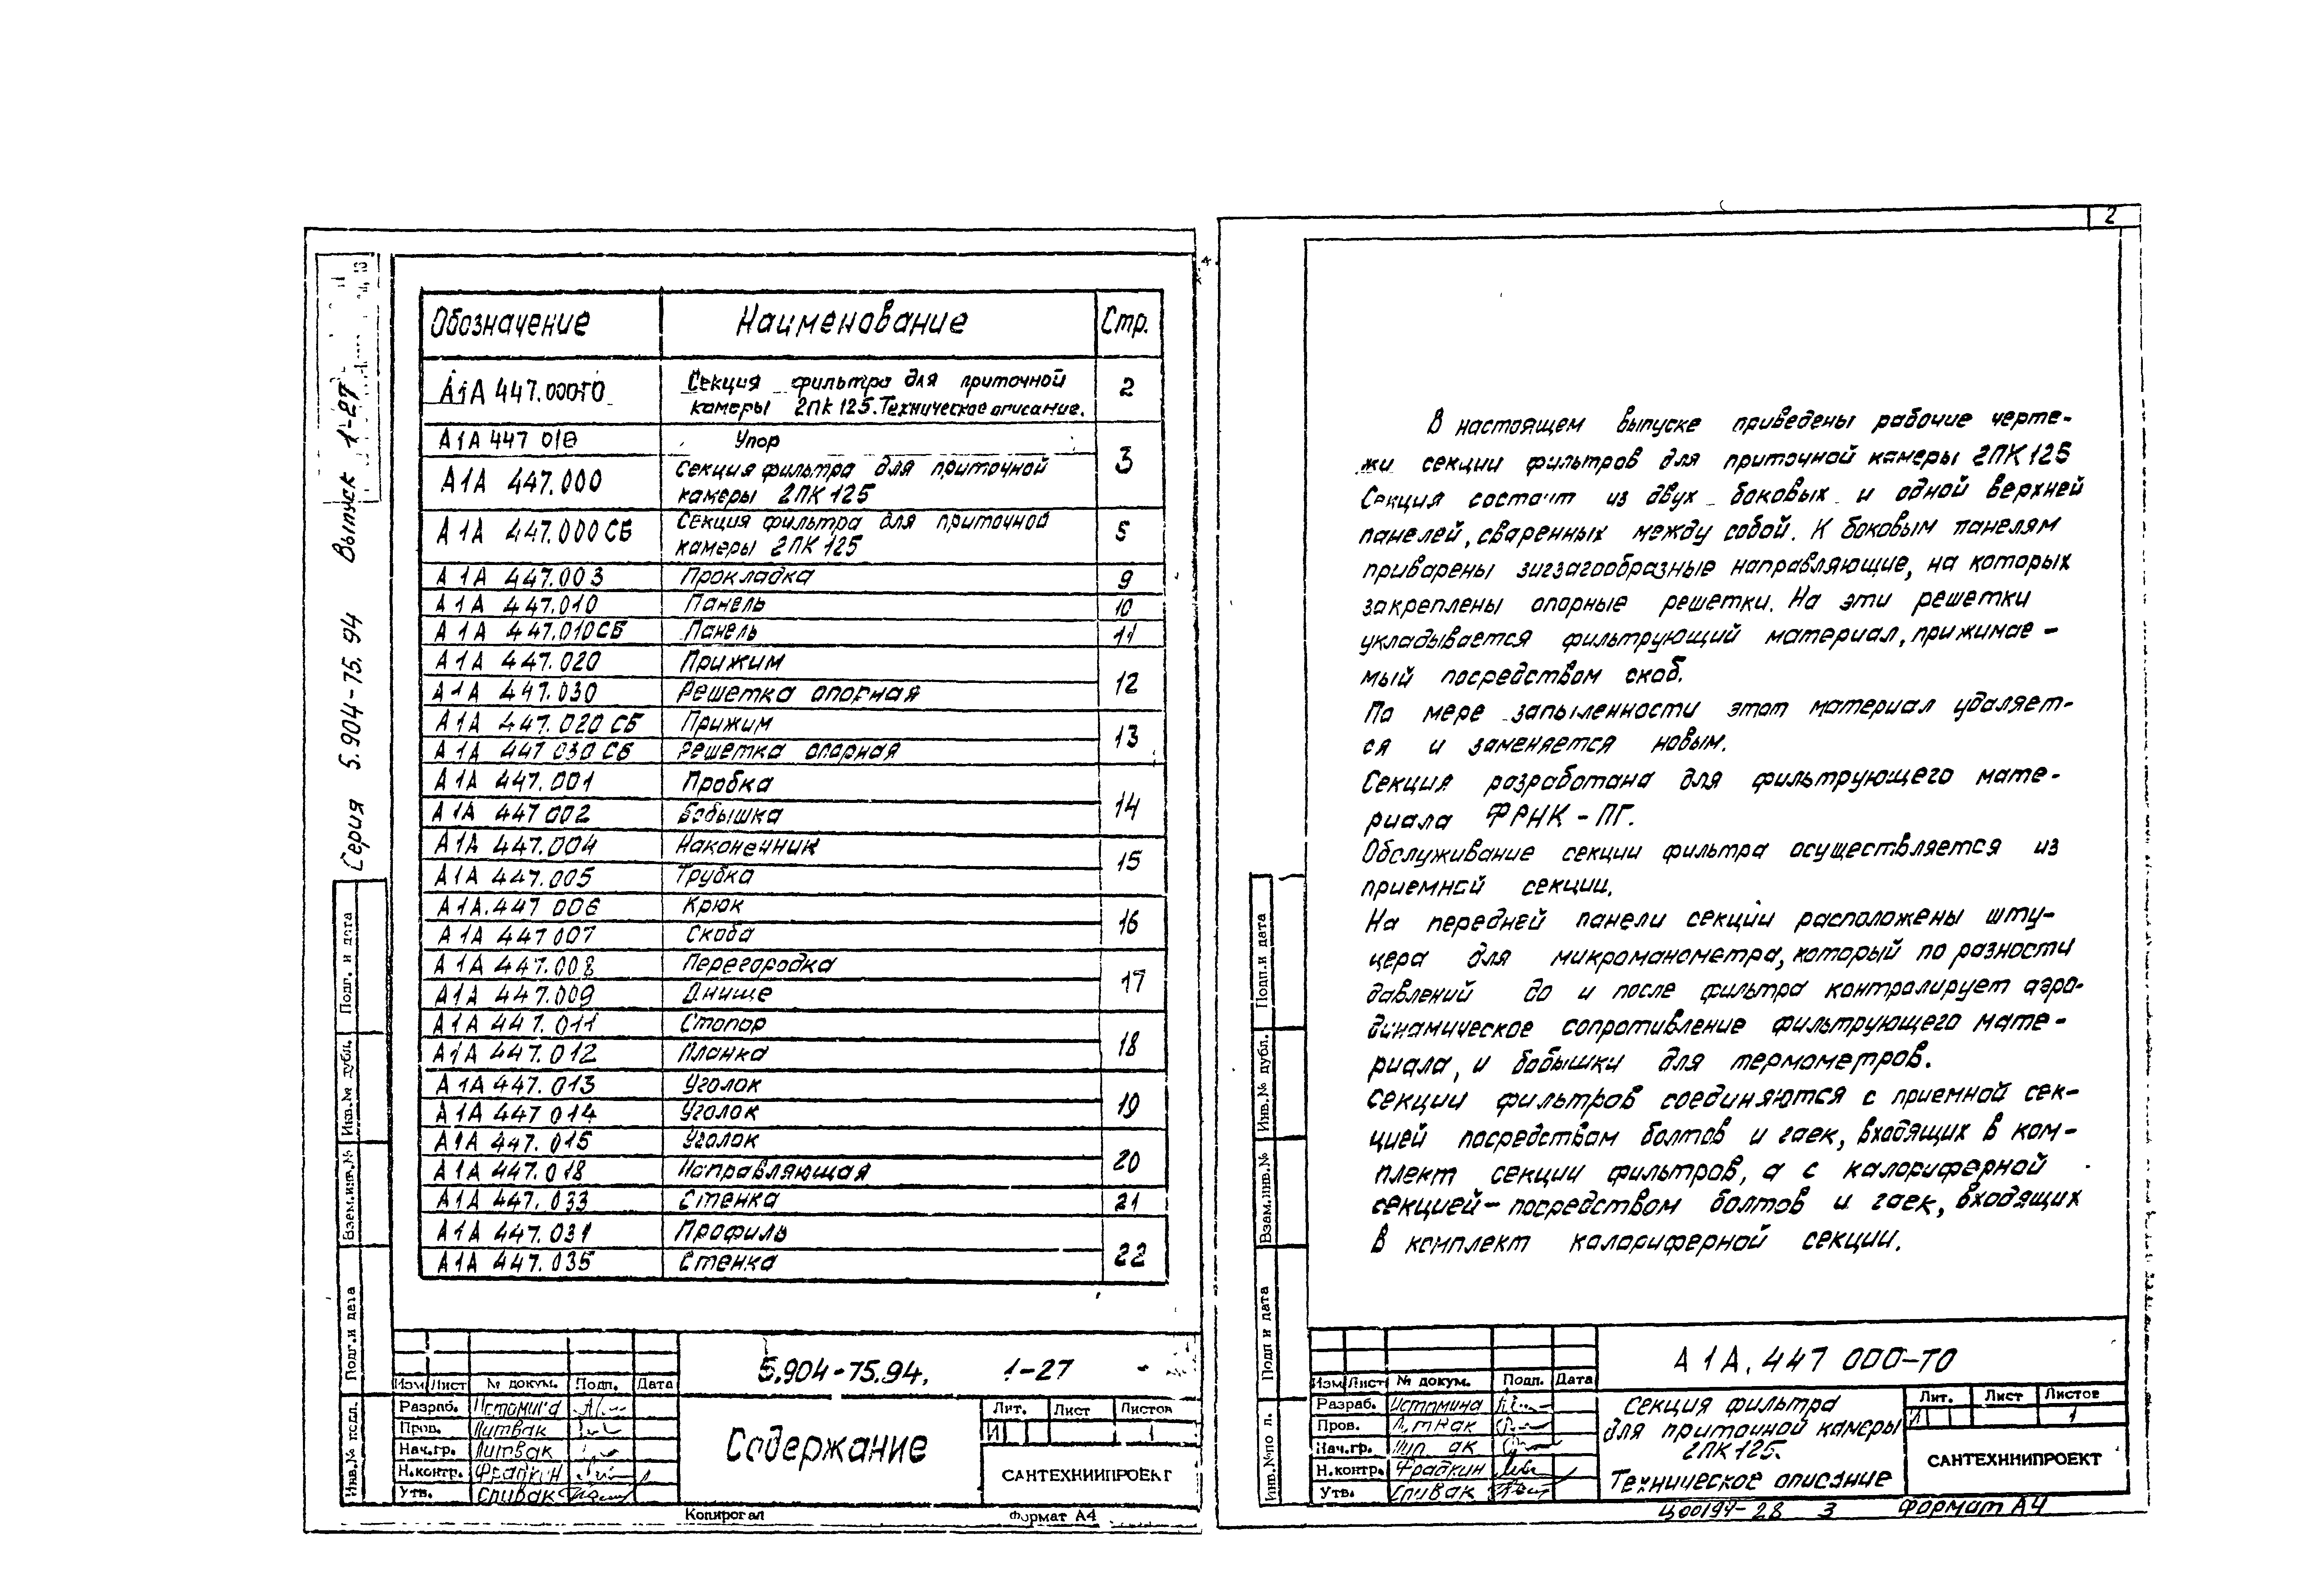 Серия 5.904-75.94 Выпуск 1-27
Обозначение Наименование Стр.
А1А 447.000ТО Секция фильтра для приточной
камеры 2ПК 125. Техническое описание. 2
А1А 447 010 Упор
3
А1А 447.000 Секция фильтра для приточной
камеры 2ПК 125
А1А 447.000 СБ Секция фильтра для приточной
камеры 2ПК 125 5
А1А 447.003 Прокладка 9
А1А 447.010 Панель 10
А1А 447.010СБ Панель 11
А1А 447.020 Прижим
12
А1А 447.030 Решетка опорная
А1А 447.020 СБ Прижим
13
А1А 447 030 СБ Решетка опорная
А1А 447.001 Пробка
14
А1А 447 002 Бобышка
А1А 447.004 Наконечник
15
А1А 447.005 Трубка
А1А.447 006 Крюк
16
А1А 447 007 Скоба
А1А 447.008 Перегородка
17
А1А 447.009 Днище
А1А 447.011 Стопор
18
А1А 447.012 Планка
А1А 447.013 Уголок
19
А1А 447 014 Уголок
А1А 447.015 Уголок
20
А1А 447.018 Направляющая
А1А 447.033 Стенка 21
А1А 447.031 Профиль
22
А1А 447.035 Стенка
Подп. и дата
Инв.№ дубл.
Взам.инв.№
Подп.и дата
Инв.№ подл.
5.904-75.94. 1-27
Изм Лист № докум. Подп. Дата
Разраб. Истомина
Пров. Литвак
Нач.гр. Литвак
Н.контр. Фрадкин
Утв. Спивак
Содержание
Лит. Лист Листов
И 1
САНТЕХНИИПРОЕКТ
Копировал Формат А4
2
В настоящем выпуске приведены рабочие черте-
жи секции фильтров для приточной камеры 2ПК 125
Секция состоит из двух боковых и одной верхней
панелей, сваренных между собой. К боковым панелям
приварены зигзагообразные направляющие, на которых
закреплены опорные решетки. На эти решетки
укладывается фильтрующий материал, прижимае-
мый посредством скоб.
По мере запыленности этот материал удаляет-
ся и заменяется новым.
Секция разработана для фильтрующего мате-
риала ФРНК-ПГ.
Обслуживание секции фильтра осуществляется из
приемной секции.
На передней панели секции расположены шту-
цера для микроманометра, который по разности
давлений до и после фильтра контролирует аэро-
динамическое сопротивление фильтрующего мате-
риала, и бобышки для термометров.
Секции фильтров соединяются с приемной сек-
цией посредством болтов и гаек, входящих в ком-
плект секции фильтров, а с калориферной
секцией-посредством болтов и гаек, входящих
в комплект калориферной секции.
Подп.и дата
Инв.№ дубл.
Взам.инв.№
Подп и дата
Инв.№по л.
А1А.447 000-ТО
Изм Лист № докум. Подп. Дата
Разраб. Истомина
Пров. Литвак
Нач.гр.
Н.контр. Фрадкин
Утв. Спивак
Секция фильтра
для приточной камеры
2ПК 125.
Техническое описание
Лит. Лист Листов
И 1
САНТЕХНИИПРОЕКТ
Ц00197-28 3 Формат А4